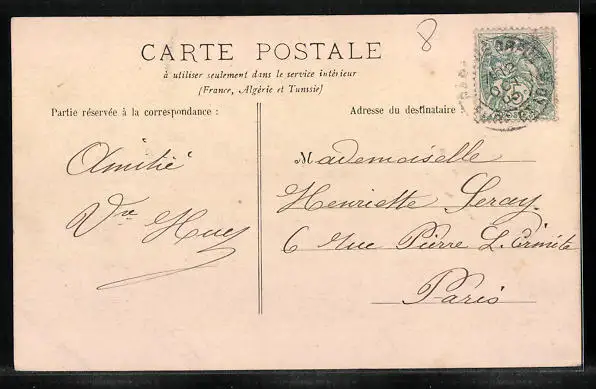 8
CARTE POSTALE
à utiliser seulement dans le service intérieur
(France, Algérie et Tunisie)
Partie réservée à la correspondance :
Adresse du destinataire
Amitié
Vve Huet
Mademoiselle
Henriette Leray
6 Rue Pierre L'Ermite
Paris